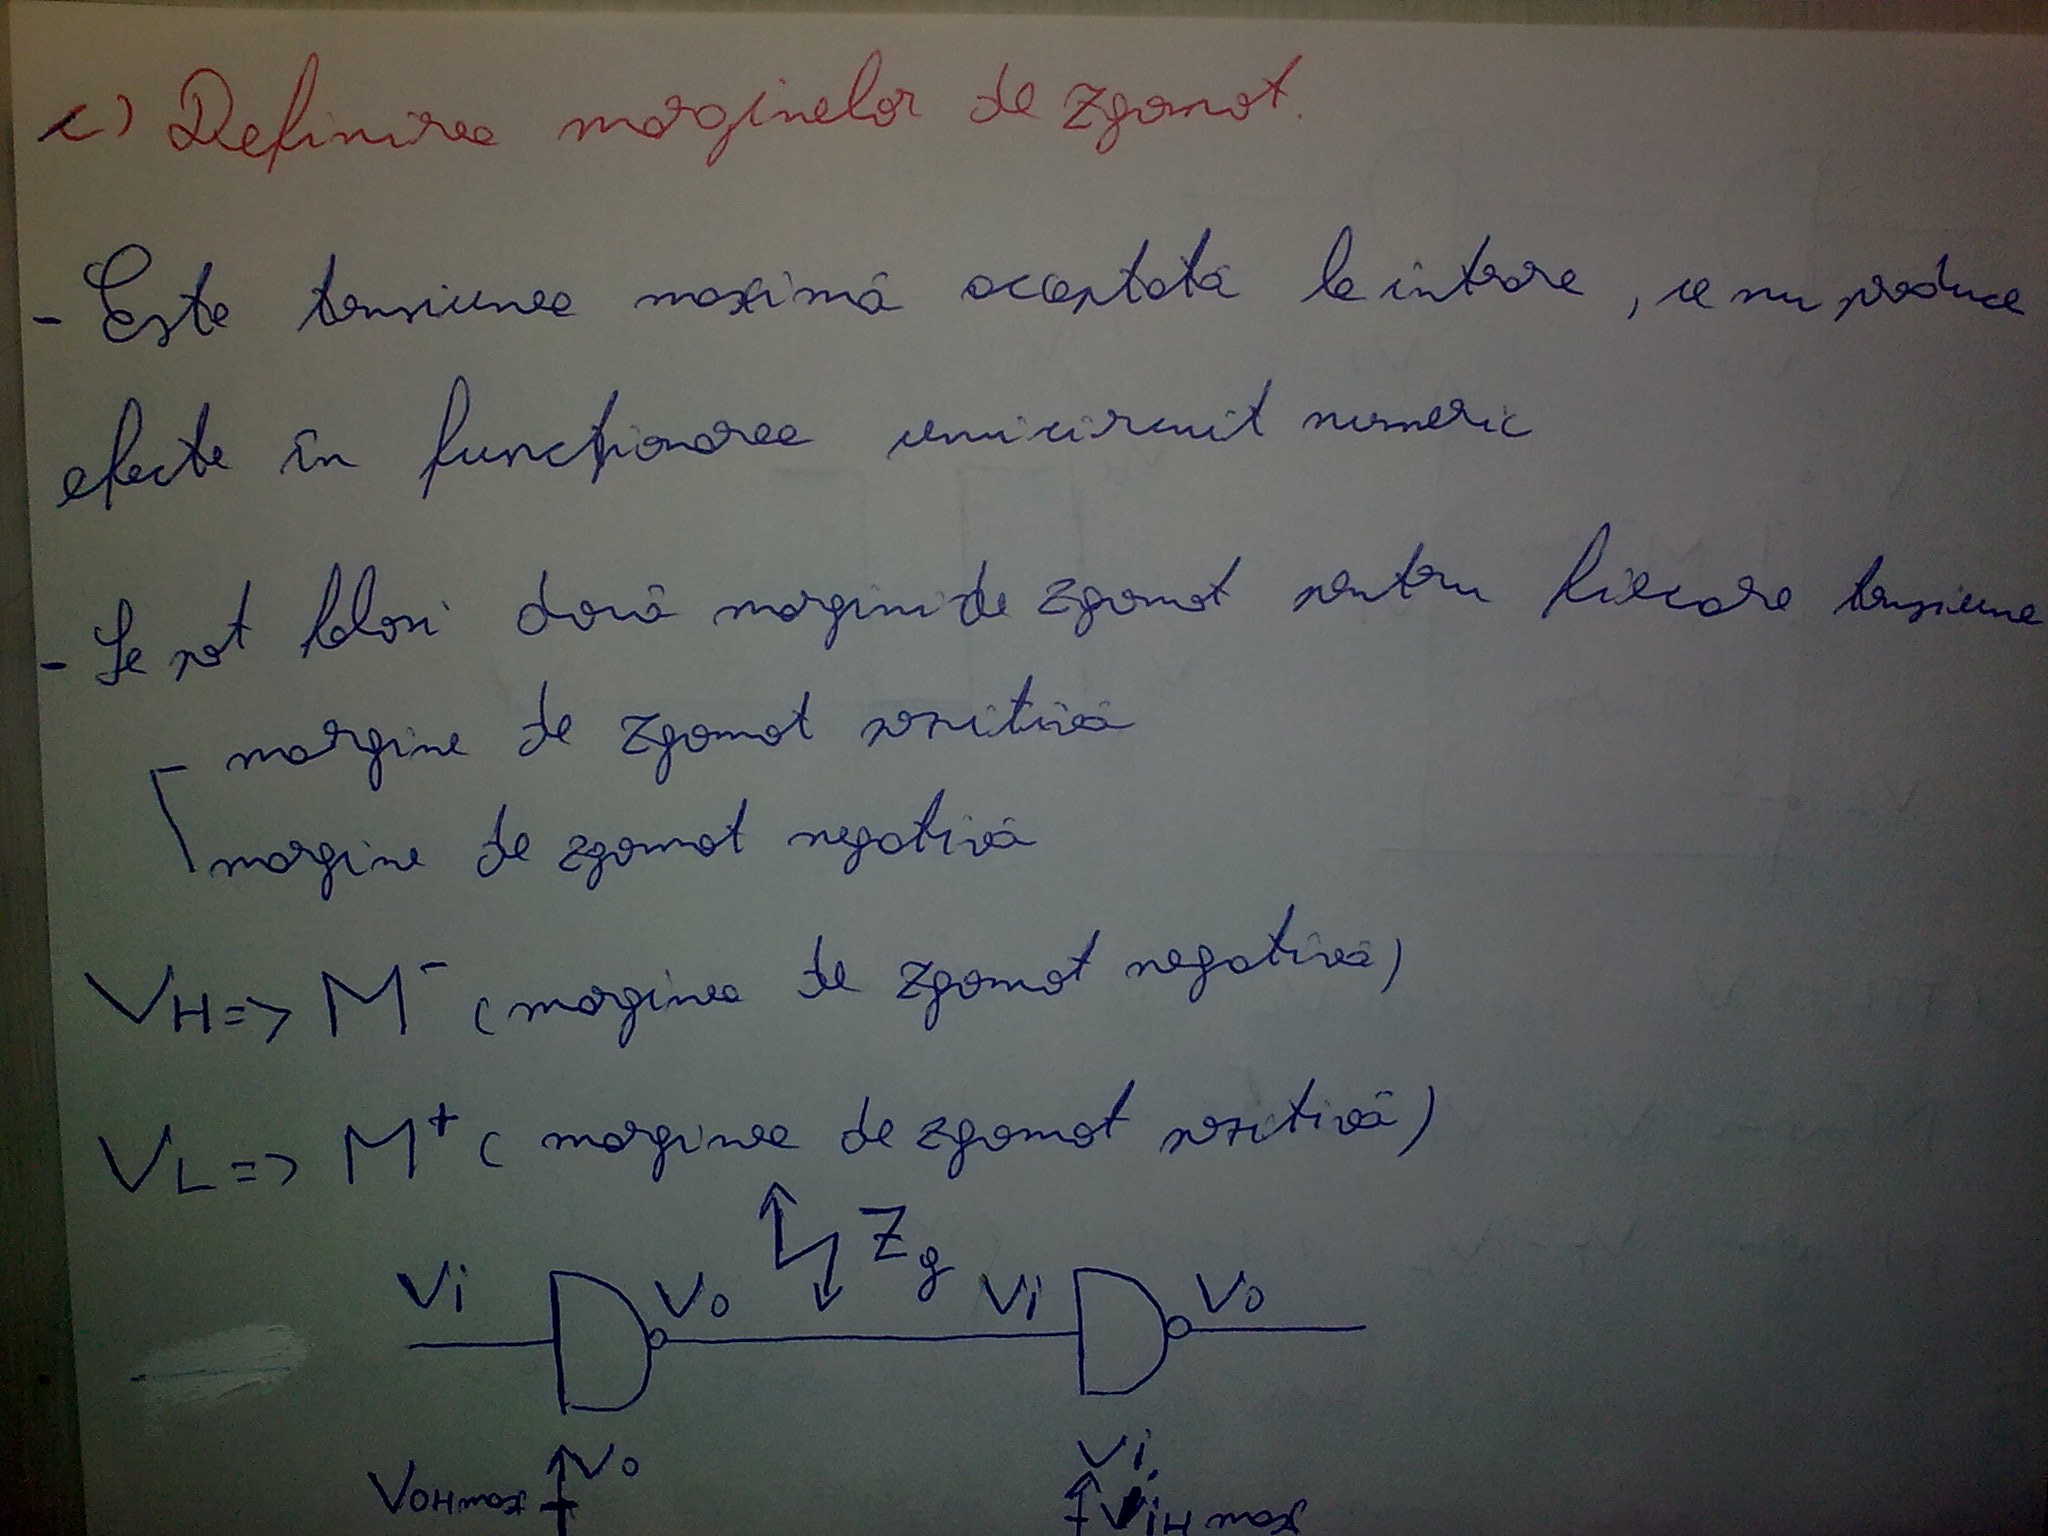 c) Definirea marginelor de zgomot.
- Este tensiunea maximă acceptată la intrare, ce nu produce
efecte în funcționarea unui circuit numeric
- Se pot folosi două margini de zgomot pentru fiecare tensiune
margine de zgomot pozitivă
margine de zgomot negativă
VH => M- (marginea de zgomot negativă)
VL => M+ (marginea de zgomot pozitivă)
Zg
Vi Vo Vi Vo
Vo Vi
VOHmax ViHmax